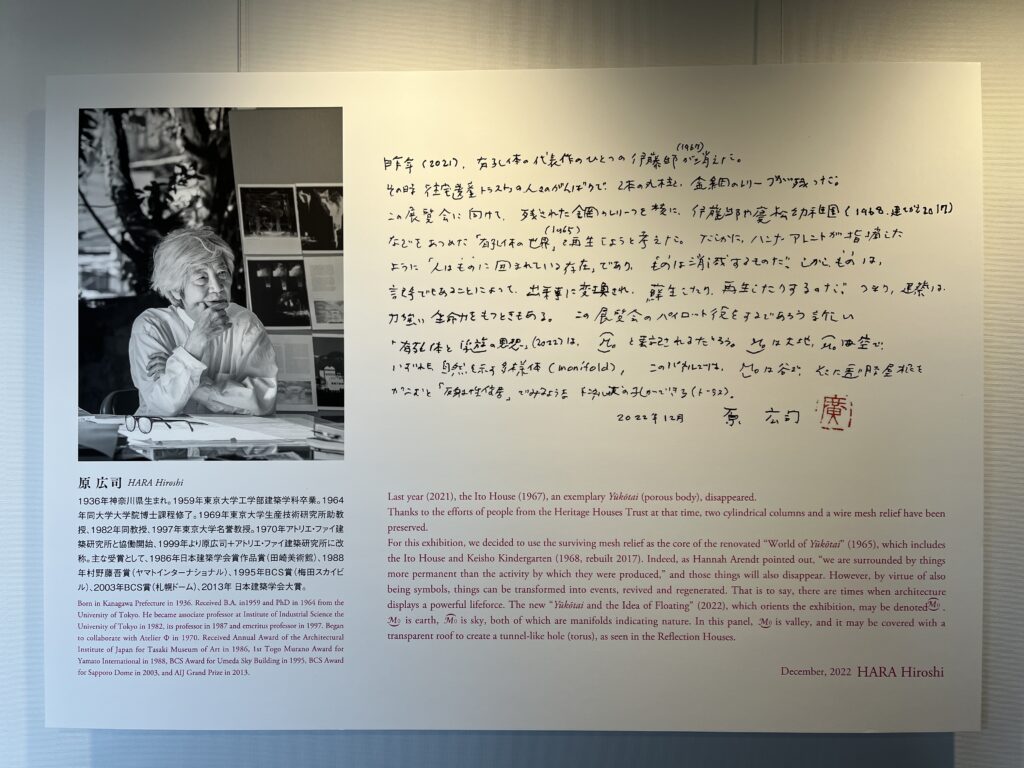 (1967)
昨年(2021)、有孔体の代表作のひとつの伊藤邸が消えた。
その時 住宅遺産トラストの人々のがんばりで、2本の丸柱と、金網のレリーフが残った。
この展覧会に向けて、残された金網のレリーフを核に、伊藤邸や慶松幼稚園(1968.建てかえ2017)
(1965)
などをあつめた「有孔体の世界」を再生しようと考えた。たしかに、ハンナ・アレントが指摘した
ように「人はものに囲まれている存在」であり、ものは消滅するものだ。しかし、ものは、
言号でもあることによって、出来事に変換され、蘇生したり、再生したりするのだ。つまり、建築は、
力強い生命力をもつときもある。この展覧会のパイロット役をするであろう新しい
「有孔体と浮遊の思想」(2022)は、と表記されるだろう。は大地、は空で、
いずれも自然を示す多様体(manifold)、このパネルでは、は谷で、
かこむと「反射性住居」でみるようなトンネル状の孔ができる(トーラス)。
2022年12月 原 広司 廣
原 広司 HARA Hiroshi
1936年神奈川県生まれ。1959年東京大学工学部建築学科卒業。1964
年同大学大学院博士課程修了。1969年東京大学生産技術研究所助教
授、1982年同教授、1997年東京大学名誉教授。1970年アトリエ・ファイ建
築研究所と協働開始、1999年より原広司+アトリエ・ファイ建築研究所に改
称。主な受賞として、1986年日本建築学会賞作品賞(田崎美術館)、1988
年村野藤吾賞(ヤマトインターナショナル)、1995年BCS賞(梅田スカイビ
ル)、2003年BCS賞(札幌ドーム)、2013年 日本建築学会大賞。
Born in Kanagawa Prefecture in 1936. Received B.A. in1959 and PhD in 1964 from the
University of Tokyo. He became associate professor at Institute of Industrial Science the
University of Tokyo in 1982, its professor in 1987 and emeritus professor in 1997. Began
to collaborate with Atelier Φ in 1970. Received Annual Award of the Architectural
Institute of Japan for Tasaki Museum of Art in 1986, 1st Togo Murano Award for
Yamato International in 1988, BCS Award for Umeda Sky Building in 1995, BCS Award
for Sapporo Dome in 2003, and AIJ Grand Prize in 2013.
Last year (2021), the Ito House (1967), an exemplary Yūkōtai (porous body), disappeared.
Thanks to the efforts of people from the Heritage Houses Trust at that time, two cylindrical columns and a wire mesh relief have been
preserved.
For this exhibition, we decided to use the surviving mesh relief as the core of the renovated “World of Yūkōtai” (1965), which includes
the Ito House and Keisho Kindergarten (1968, rebuilt 2017). Indeed, as Hannah Arendt pointed out, “we are surrounded by things
more permanent than the activity by which they were produced,” and those things will also disappear. However, by virtue of also
being symbols, things can be transformed into events, revived and regenerated. That is to say, there are times when architecture
displays a powerful lifeforce. The new “Yūkōtai and the Idea of Floating” (2022), which orients the exhibition, may be denoted ,
is earth, is sky, both of which are manifolds indicating nature. In this panel, is valley, and it may be covered with a
transparent roof to create a tunnel-like hole (torus), as seen in the Reflection Houses.
December, 2022 HARA Hiroshi